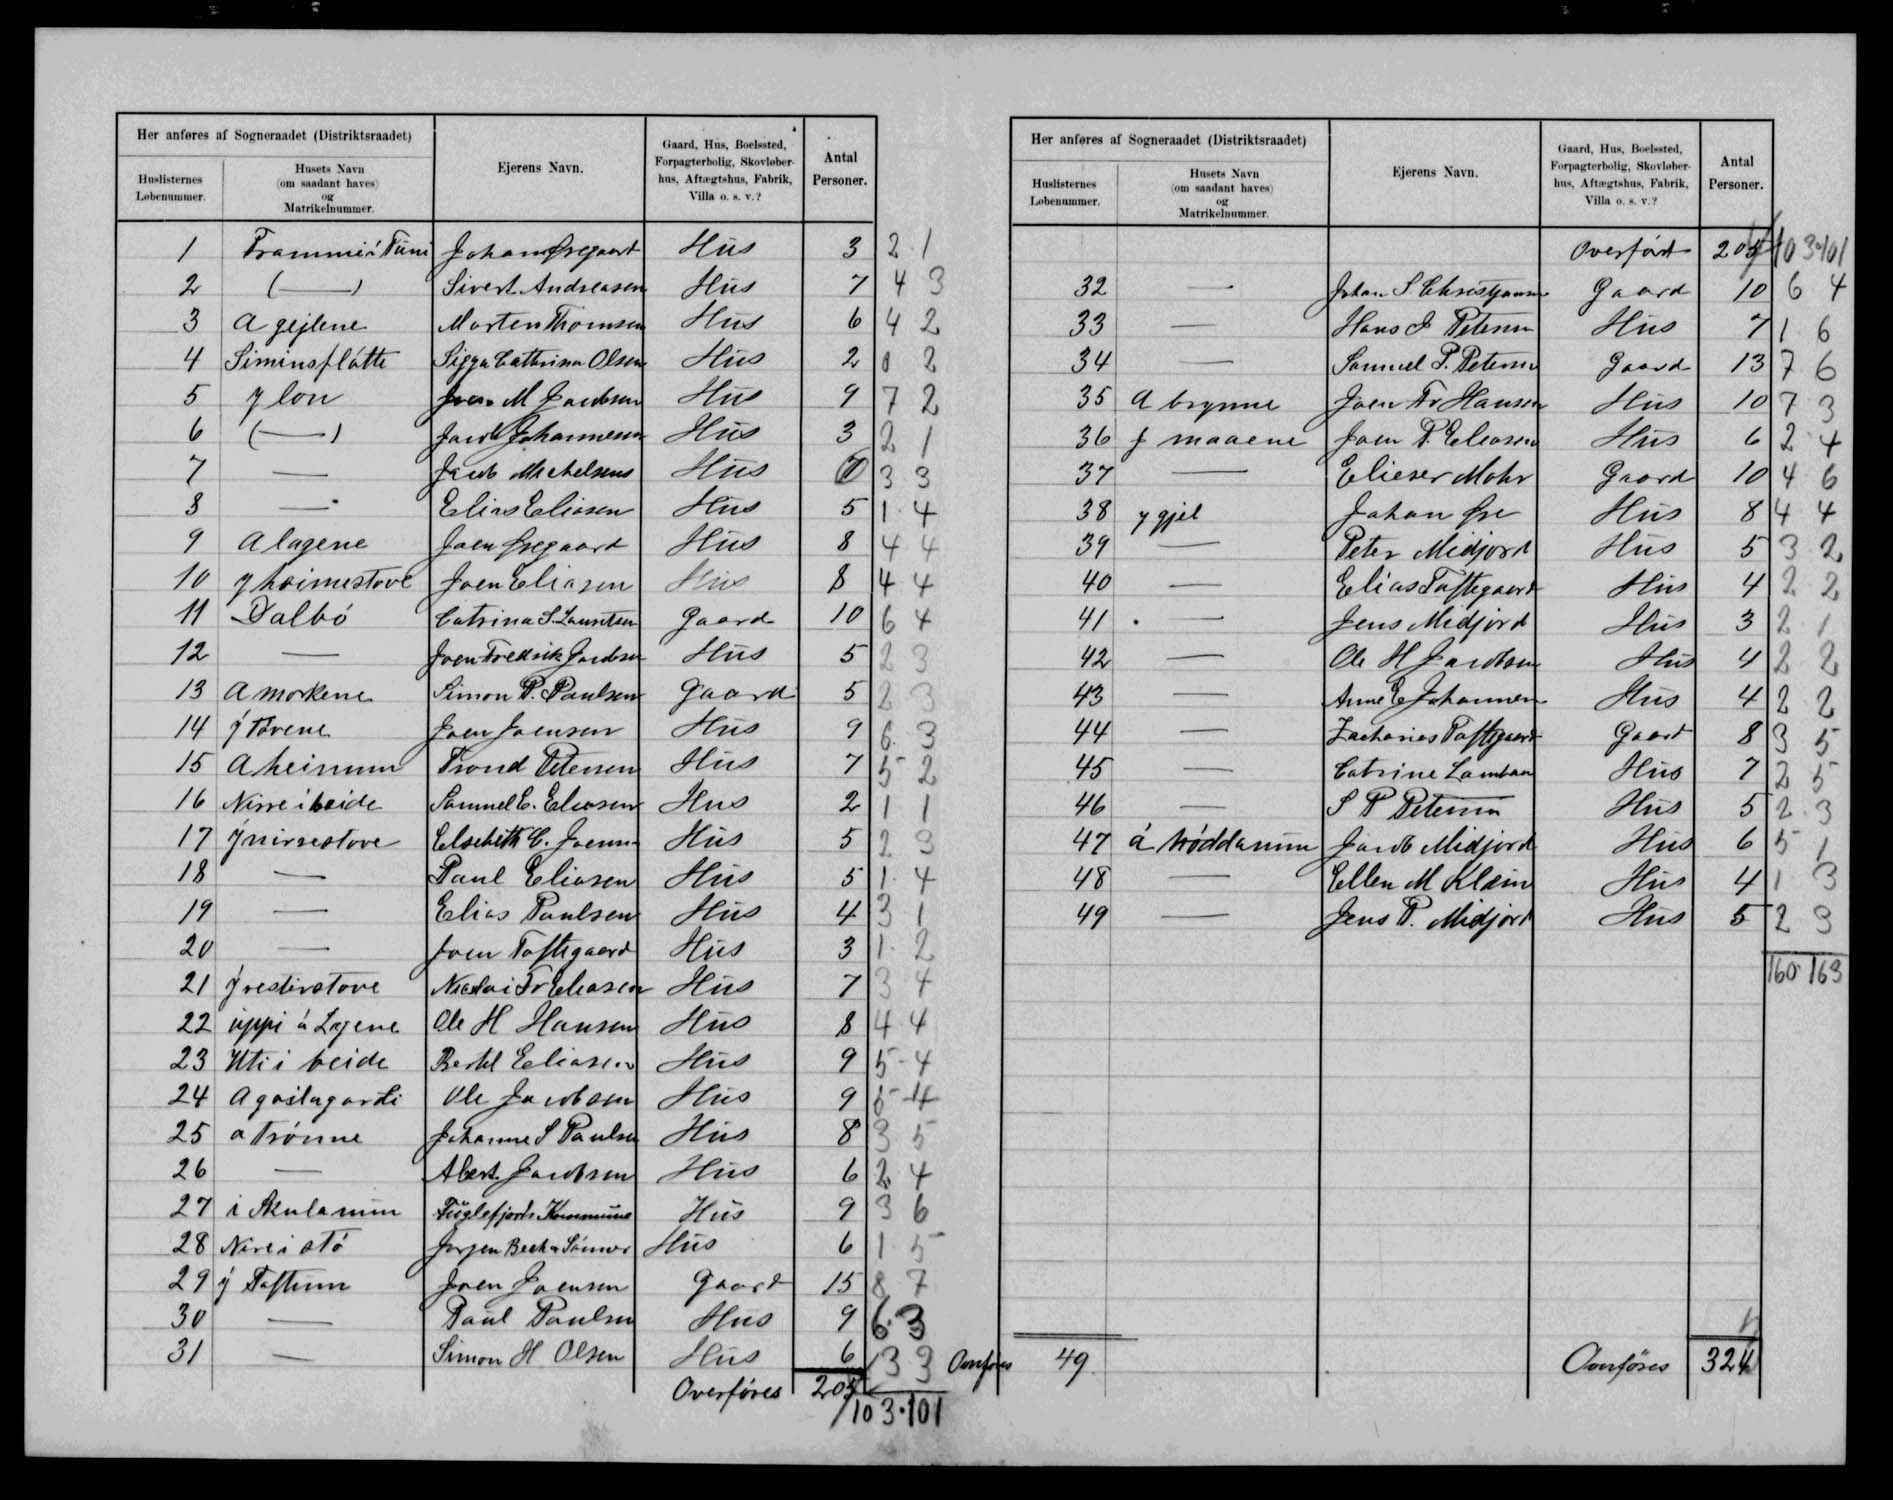 Her anføres af Sogneraadet (Distriktsraadet)
Huslisternes Løbenummer. Husets Navn (om saadant haves) og Matrikelnummer. Ejerens Navn. Gaard, Hus, Boelssted, Forpagterbolig, Skovløberhus, Aftægtshus, Fabrik, Villa o. s. v.? Antal Personer.
1 Frammi í Túni Johan Øregaard Hus 3 2 1
2 (—) Sivert Andreasen Hus 7 4 3
3 A gejlene Morten Thomsen Hus 6 4 2
4 Siminsflátte Sigga Cathrina Olsen Hus 2 0 2
5 y lon Joen M Jacobsen Hus 9 7 2
6 (—) Jacob Johannesen Hus 3 2 1
7 — Jacob Michelsens Hus 3 3
8 — Elias Eliasen Hus 5 1 4
9 A lagene Joen Øregaard Hus 8 4 4
10 y hoimestove Joen Eliasen Hus 8 4 4
11 Dalbó Catrina S. Lauritsen Gaard 10 6 4
12 — Joen Fredrik Jacobsen Hus 5 2 3
13 A morkene Simon P. Paulsen Gaard 5 2 3
14 ý Tovene Joen Joensen Hus 9 6 3
15 A heimum Trond Petersen Hus 7 5 2
16 Nirre i heide Samuel E. Eliasen Hus 2 1 1
17 ý nirrestove Elsebith C. Joensen Hus 5 2 3
18 — Paul Eliasen Hus 5 1 4
19 — Elias Paulsen Hus 4 3 1
20 — Joen Toftegaard Hus 3 1 2
21 ý restirstove Nicolai Fr Eliasen Hus 7 3 4
22 uppi á Lagene Ole H Hansen Hus 8 4 4
23 Uti i heide Berthl Eliasen Hus 9 5 4
24 A goilagardi Ole Jacobsen Hus 9 5 4
25 a Trónne Johanne S Paulsen Hus 8 3 5
26 — Albert Jacobsen Hus 6 2 4
27 i Skulanum Fuglefjords Kommune Hus 9 3 6
28 Nire i stó Jorgen Bech & Sönner Hus 6 1 5
29 ý Toftum Joen Joensen Gaard 15 8 7
30 — Paul Paulsen Hus 9 6 3
31 — Simon H Olsen Hus 6 3 3
Overføres 204
103 · 101
Her anføres af Sogneraadet (Distriktsraadet)
Huslisternes Løbenummer. Husets Navn (om saadant haves) og Matrikelnummer. Ejerens Navn. Gaard, Hus, Boelssted, Forpagterbolig, Skovløberhus, Aftægtshus, Fabrik, Villa o. s. v.? Antal Personer.
Overført 204 103 101
32 — Johan S. Christjansen Gaard 10 6 4
33 — Hans J Petersen Hus 7 1 6
34 — Samuel P. Petersen Gaard 13 7 6
35 A brynne Joen Fr Hansen Hus 10 7 3
36 y maaene Joen P. Eliasen Hus 6 2 4
37 — Elieser Mohr Gaard 10 4 6
38 y gjel Johan Øre Hus 8 4 4
39 — Peter Midjord Hus 5 3 2
40 — Elias Toftegaard Hus 4 2 2
41 — Jens Midjord Hus 3 2 1
42 — Ole H Jacobsen Hus 4 2 2
43 — Anne E Johannesen Hus 4 2 2
44 — Zacharias Toftegaard Gaard 8 3 5
45 — Catrine Lambaa Hus 7 2 5
46 — S P Petersen Hus 5 2 3
47 á tróddanum Jacob Midjord Hus 6 5 1
48 — Ellen M Klein Hus 4 1 3
49 — Jens P. Midjord Hus 5 2 3
160 163
Overføres 49 Overføres 324